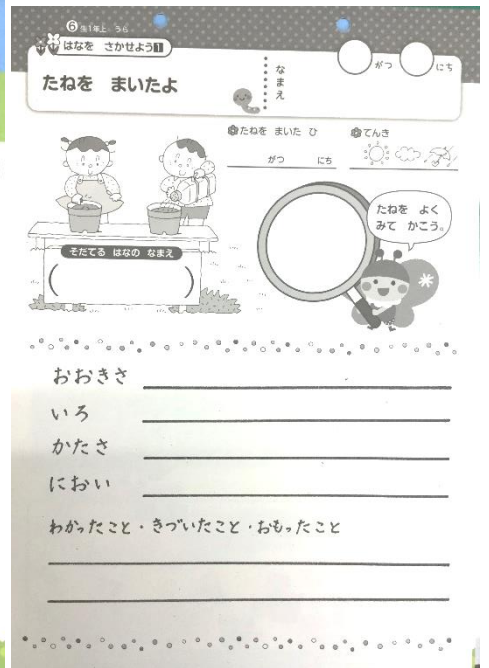 ⑥ 生1年上・うら
はなを さかせよう1
たねを まいたよ
なまえ
がつ にち
たねを まいた ひ
がつ にち
てんき
たねを よく
みて かこう。
そだてる はなの なまえ
( )
おおきさ
いろ
かたさ
におい
わかったこと・きづいたこと・おもったこと